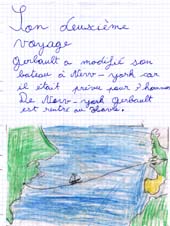 Son deuxième
voyage
Gerbault a modifié son
bateau à New-york car
il était prévu pour 1 homme
De New-york Gerbault
est rentré au Havre.